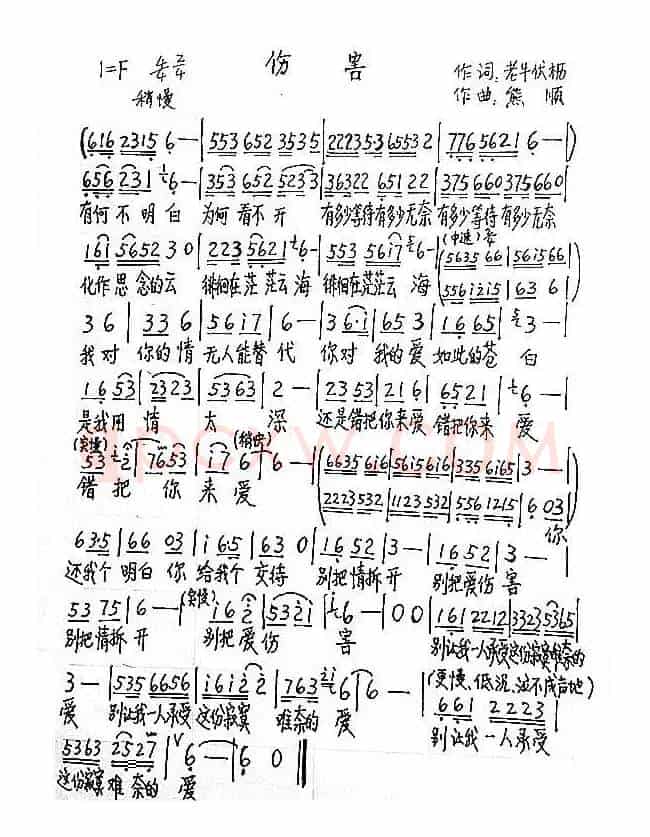 1=F 4/4 2/4 伤 害 作词:老牛伏枥
稍慢 作曲:熊 顺
(616 2315 6 — | 553 652 3535 | 22235·3 65532 | 776 5621 6 — |)
656 231 6 — | 353 652 5233 | 36322 651 22 | 375 660 375 660 |
有何不明白 为何看不开 有多少等待有多少无奈 有多少等待有多少无奈
161 5652 3 0 | 223 5621 6 — | 553 5617 6 — | (5635 66 | 561566 |
(中速)
化作思念的云 徘徊在茫茫云海 徘徊在茫茫云海 556 1215 | 63 6 )
3 6 | 33 6 | 5617 | 6 — | 3 6·1 | 65 3 | 1 6 65 | 3 — |
我对你的情无人能替代 你对我的爱如此的苍白
16 53 | 23 23 | 5363 | 2 — | 23 53 | 21 6 | 6521 | 6 — |
是我用情太深 还是错把你来爱错把你来爱
(突慢) (稍快)
53 2 | 7653 | 1 7 6 | 6 — | (6635 616 | 5615 616 | 335 6165 | 3 — |
错把你来爱 2223532 | 1123532 | 556 1215 | 6 03)
你
635 | 66 03 | 1 65 | 63 0 | 16 52 | 3 — | 16 52 | 3 — |
还我个明白你给我个交待 别把情拆开 别把爱伤害
53 75 | 6 — | (突慢) 16 2 | 5321 | 6 — | 0 0 | 161 2212 | 3323 5365 |
别把情拆开 别把爱伤害 别让我一人承受这份寂寞难奈的
3 — | 535 6656 | 1612 2 | 763 216 | 6 — | (更慢、低沉、泣不成声地)
爱 别让我一人承受这份寂寞 难奈的爱 661 2223 |
别让我一人承受
5363 2527 | 6 — | 6 0 ‖
这份寂寞难奈的爱